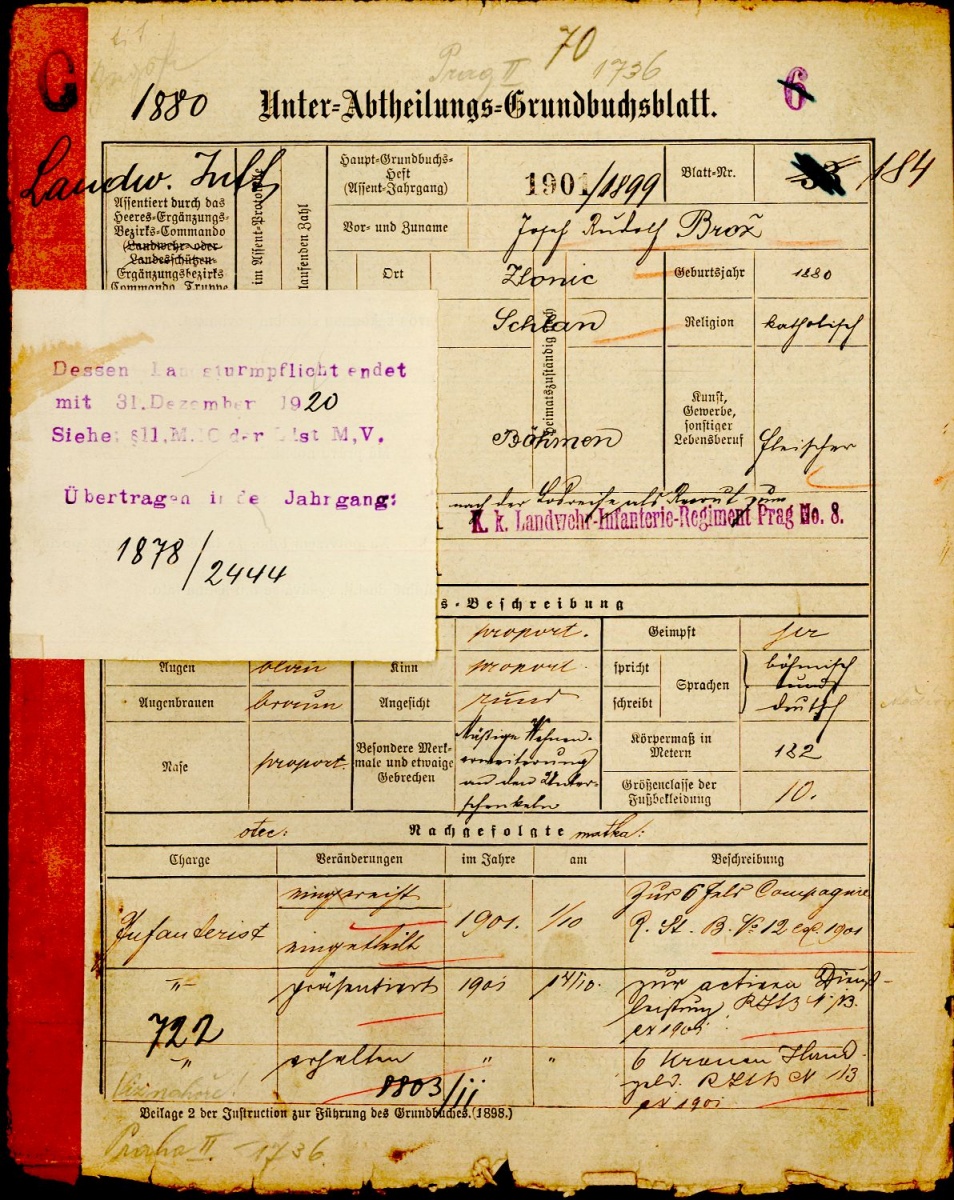 70
Prag II 1736
G
6
1880 Unter-Abtheilungs-Grundbuchsblatt.
Landw. Inft
Assentiert durch das
Heeres-Ergänzungs-
Bezirks-Commando
(Landwehr- oder
Landesschützen-
Ergänzungsbezirks
Commando, Truppe
im Assent-Protokolle
laufenden Zahl
Haupt-Grundbuchs-
Heft
(Assent-Jahrgang)
1901/1899
Blatt-Nr.
53 /184
Vor- und Zuname
Josef Rudolf Brož
Ort
Zlonic
Geburtsjahr
1880
Schlan
Heimatszuständig
Religion
katholisch
Böhmen
Kunst,
Gewerbe,
sonstiger
Lebensberuf
Fleischer
Dessen Landsturmpflicht endet
mit 31.Dezember 1920
Siehe: §11,M. der M,V.
Übertragen in de Jahrgang:
1878/2444
nach der Losreihe als Recrut zum
K. k. Landwehr-Infanterie-Regiment Prag No. 8.
s-Beschreibung
proport.
Geimpft
ja
Augen
blau
Kinn
proport.
spricht
schreibt
Sprachen
böhmisch
und
deutsch
Augenbrauen
braun
Angesicht
rund
Nase
proport.
Besondere Merk-
male und etwaige
Gebrechen
Mäßige Venen-
erweiterung
an den Unter-
schenkeln
Körpermaß in
Metern
182
Größenclasse der
Fußbekleidung
10.
otec: Nachgefolgte matka:
Charge
Veränderungen
im Jahre
am
Beschreibung
Infanterist
eingereiht
eingetheilt
1901.
1/10
zur 6 Feld Compagnie
R. St. B. No 12 ex 1901
-"-
präsentiert
1901
14/10.
zur activen Dienst-
leistung.
ex 1901
722
-"-
erhalten
"
"
6 Kronen Hand-
geld.
ex 1901
8803/II
Beilage 2 der Instruction zur Führung des Grundbuches.(1898.)
Praha II. - 1736.